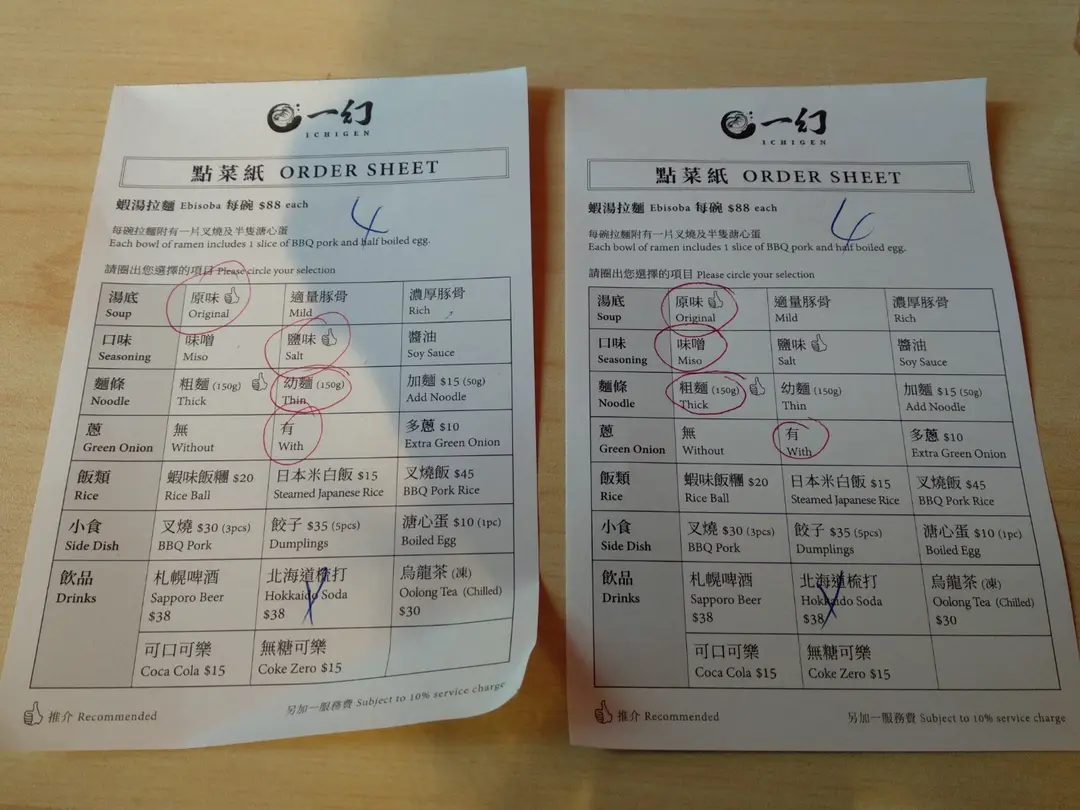 一幻
ICHIGEN
點菜紙 ORDER SHEET
蝦湯拉麵 Ebisoba 每碗 $88 each
4
每碗拉麵附有一片叉燒及半隻溏心蛋
Each bowl of ramen includes 1 slice of BBQ pork and half boiled egg.
請圈出您選擇的項目 Please circle your selection
湯底 原味 適量豚骨 濃厚豚骨
Soup Original Mild Rich
口味 味噌 鹽味 醬油
Seasoning Miso Salt Soy Sauce
麵條 粗麵 (150g) 幼麵 (150g) 加麵 $15 (50g)
Noodle Thick Thin Add Noodle
蔥 無 有 多蔥 $10
Green Onion Without With Extra Green Onion
飯類 蝦味飯糰 $20 日本米白飯 $15 叉燒飯 $45
Rice Rice Ball Steamed Japanese Rice BBQ Pork Rice
小食 叉燒 $30 (3pcs) 餃子 $35 (5pcs) 溏心蛋 $10 (1pc)
Side Dish BBQ Pork Dumplings Boiled Egg
飲品 札幌啤酒 北海道梳打 烏龍茶 (凍)
Drinks Sapporo Beer Hokkaido Soda Oolong Tea (Chilled)
$38 $38 $30
可口可樂 無糖可樂
Coca Cola $15 Coke Zero $15
推介 Recommended 另加一服務費 Subject to 10% service charge
一幻
ICHIGEN
點菜紙 ORDER SHEET
蝦湯拉麵 Ebisoba 每碗 $88 each
4
每碗拉麵附有一片叉燒及半隻溏心蛋
Each bowl of ramen includes 1 slice of BBQ pork and half boiled egg.
請圈出您選擇的項目 Please circle your selection
湯底 原味 適量豚骨 濃厚豚骨
Soup Original Mild Rich
口味 味噌 鹽味 醬油
Seasoning Miso Salt Soy Sauce
麵條 粗麵 (150g) 幼麵 (150g) 加麵 $15 (50g)
Noodle Thick Thin Add Noodle
蔥 無 有 多蔥 $10
Green Onion Without With Extra Green Onion
飯類 蝦味飯糰 $20 日本米白飯 $15 叉燒飯 $45
Rice Rice Ball Steamed Japanese Rice BBQ Pork Rice
小食 叉燒 $30 (3pcs) 餃子 $35 (5pcs) 溏心蛋 $10 (1pc)
Side Dish BBQ Pork Dumplings Boiled Egg
飲品 札幌啤酒 北海道梳打 烏龍茶 (凍)
Drinks Sapporo Beer Hokkaido Soda Oolong Tea (Chilled)
$38 $38 $30
可口可樂 無糖可樂
Coca Cola $15 Coke Zero $15
推介 Recommended 另加一服務費 Subject to 10% service charge